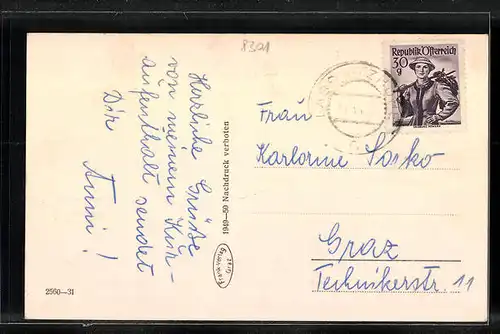 8321
Herzliche Grüße
von meinem Kur-
aufenthalt sendet
Dir
Anni!
1949–50 Nachdruck verboten
2560—31
Republik Österreich
30
g
Frau
Karlorine Sorko
Graz
Technikerstr. 11